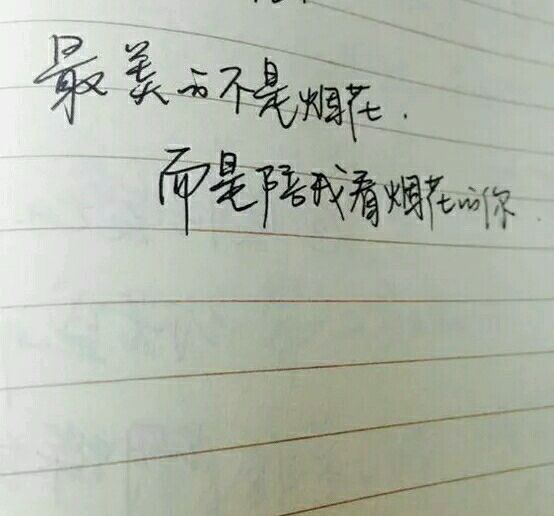 最美的不是烟花.
而是陪我看烟花的你.